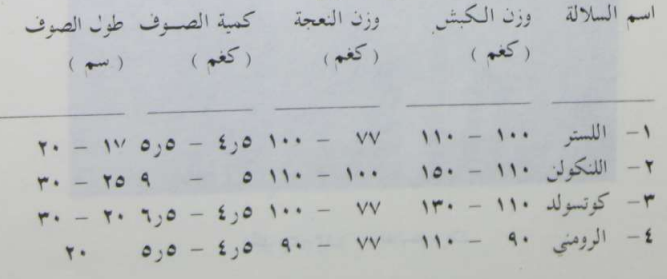 اسم السلالة وزن الكبش وزن النعجة كمية الصوف طول الصوف
( كغم ) ( كغم ) ( كغم ) ( سم )
١- اللستر ١٠٠ - ١١٠ ٧٧ - ١٠٠ ٤ر٥ - ٥ر٥ ١٧ - ٢٠
٢- اللنكولن ١١٠ - ١٥٠ ١٠٠ - ١١٠ ٥ - ٩ ٢٥ - ٣٠
٣- كوتسولد ١١٠ - ١٣٠ ٧٧ - ١٠٠ ٤ر٥ - ٦ر٥ ٢٠ - ٣٠
٤- الرومني ٩٠ - ١١٠ ٧٧ - ٩٠ ٤ر٥ - ٥ر٥ ٢٠